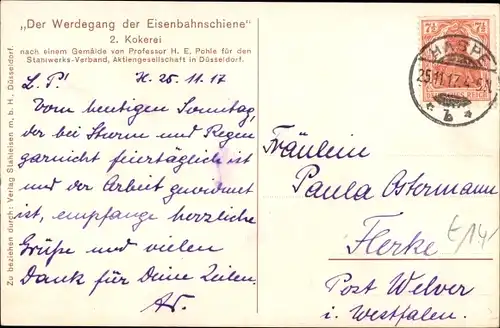 „Der Werdegang der Eisenbahnschiene“
2. Kokerei
nach einem Gemälde von Professor H. E. Pohle für den
Stahlwerks-Verband, Aktiengesellschaft in Düsseldorf.
Zu beziehen durch: Verlag Stahleisen m. b. H., Düsseldorf.
L. P.! H. 25.11.17
Vom heutigen Sonntag,
der bei Sturm und Regen
garnicht feiertäglich ist
und der Arbeit gewidmet
ist, empfange herzliche
Grüße und vielen
Dank für Deine Zeilen.
7½ 7½
HASPE
25.11.17
* b *
Fräulein
Paula Ostermann
Flerke
Post Welver
i. Westfalen.